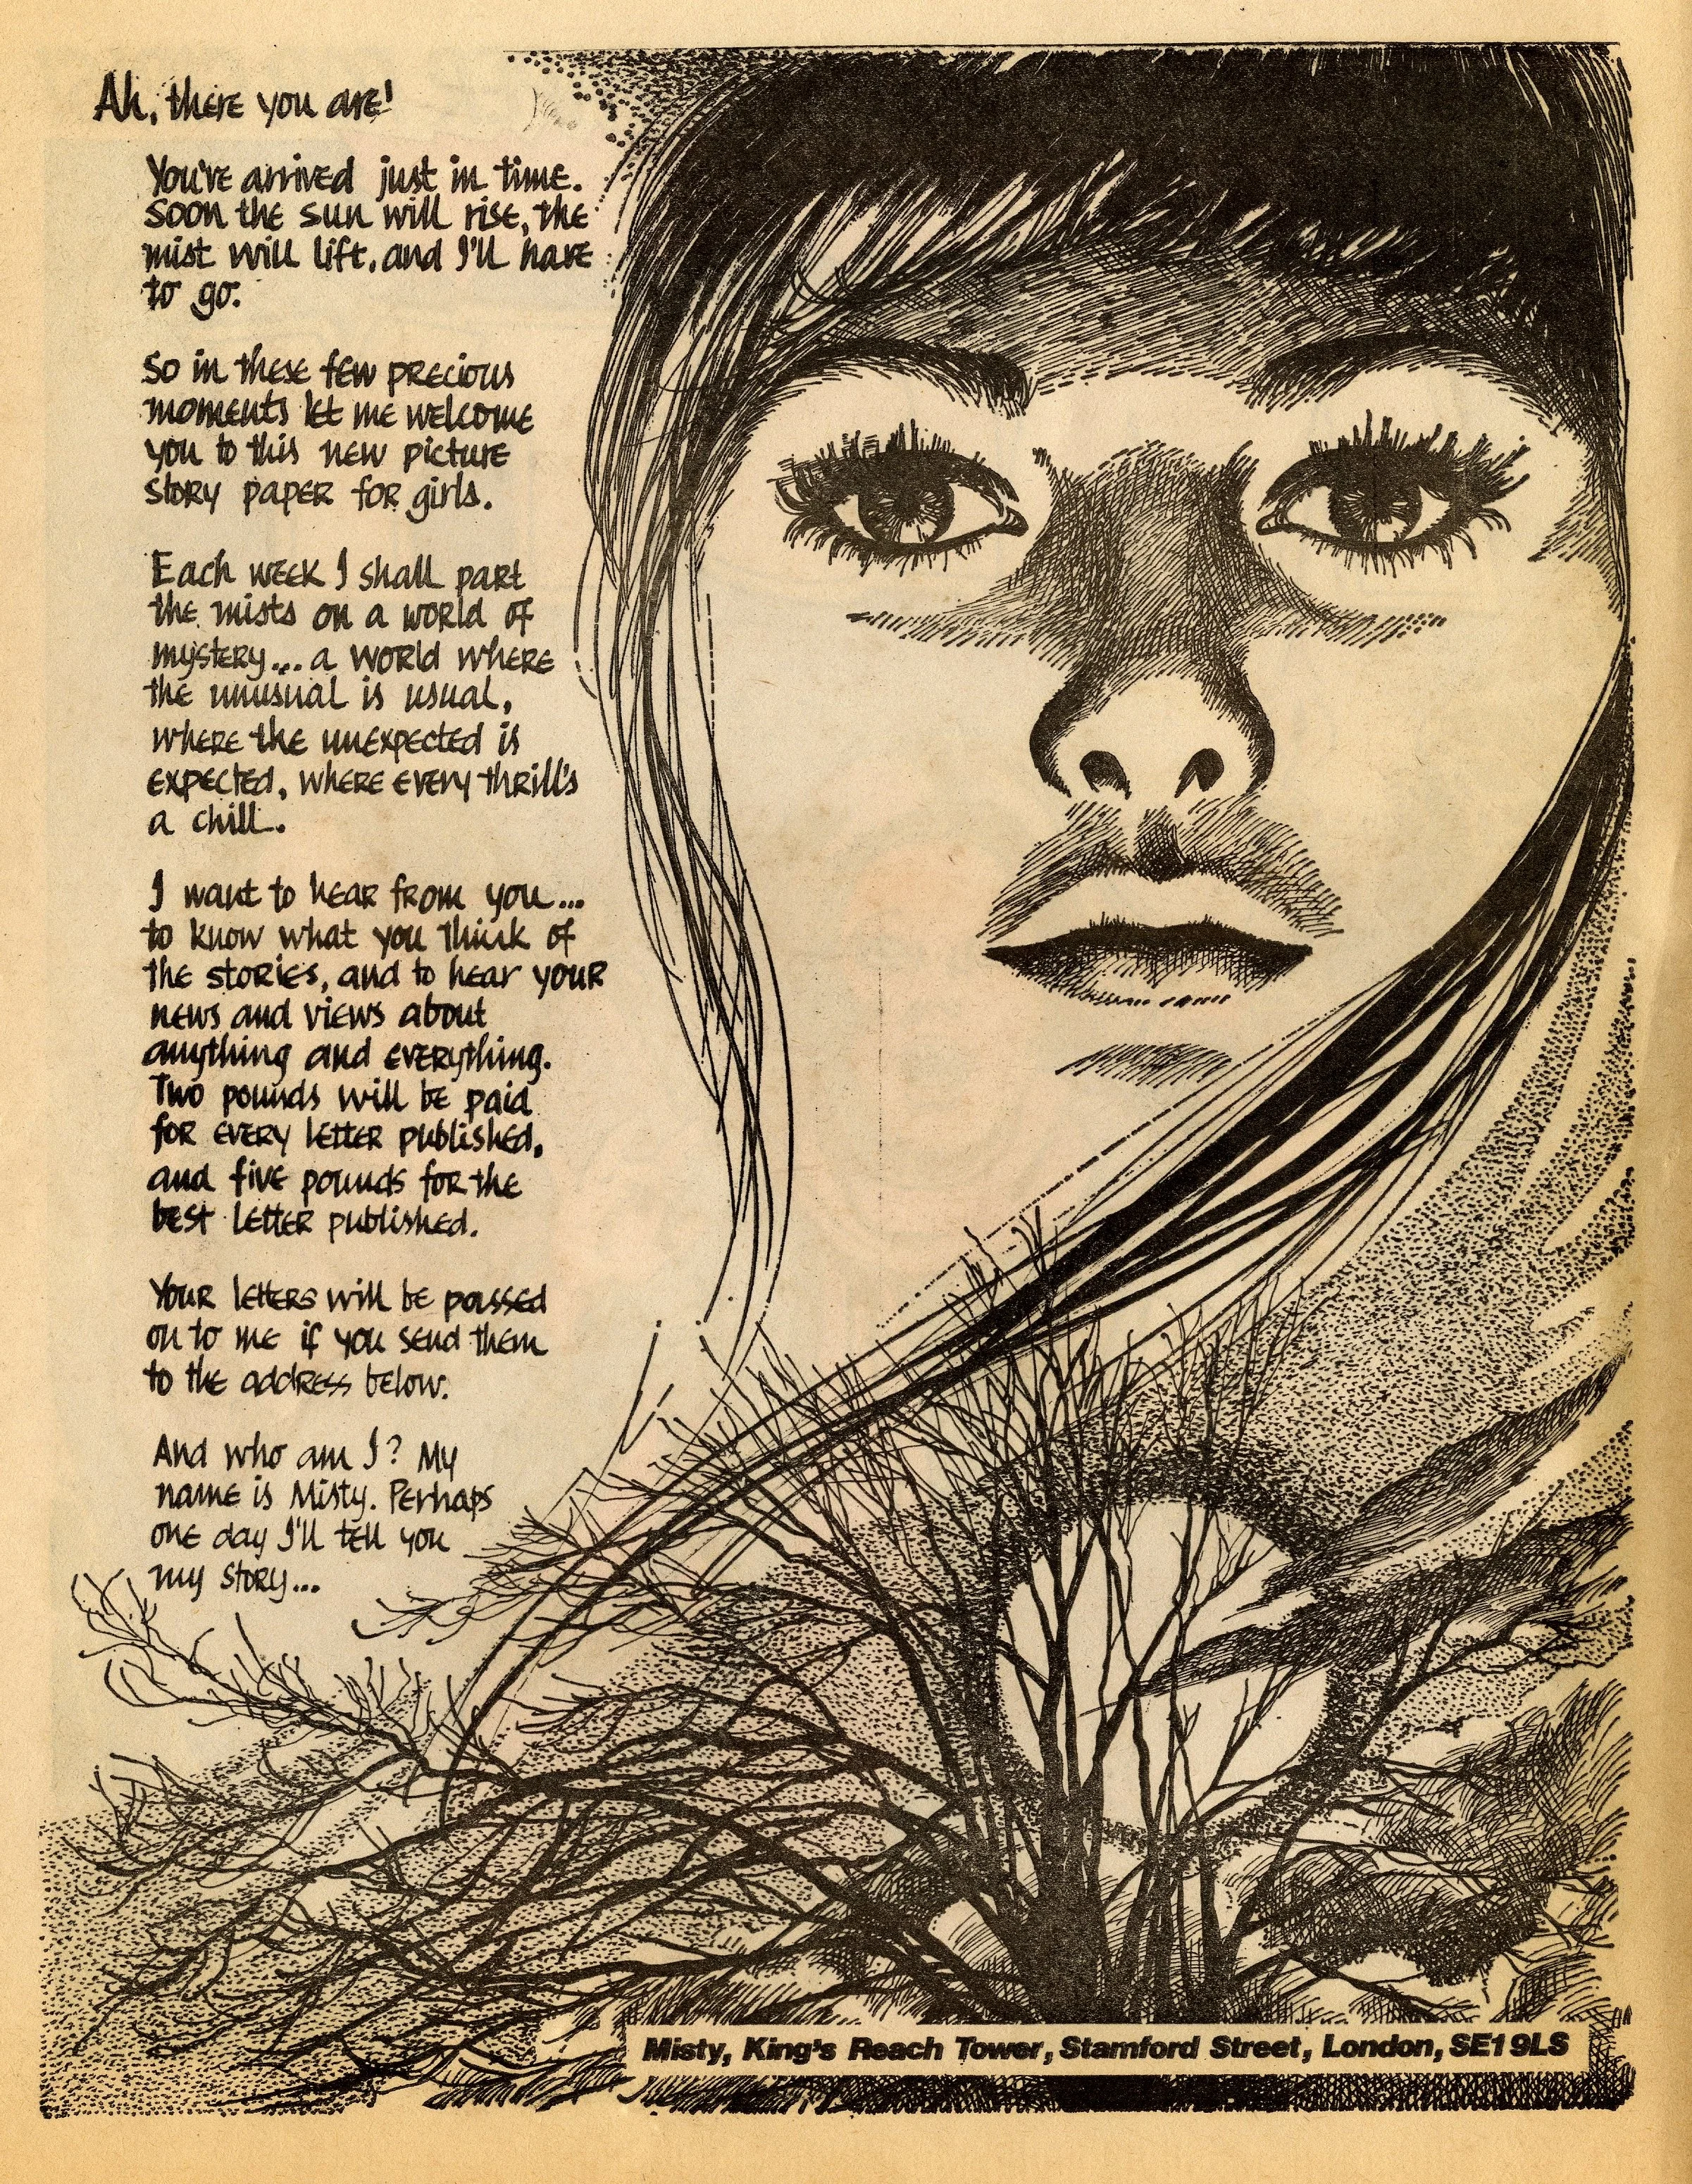 Ah, there you are!
You've arrived just in time.
Soon the sun will rise, the
mist will lift, and I'll have
to go.
So in these few precious
moments let me welcome
you to this new picture
story paper for girls.
Each week I shall part
the mists on a world of
mystery... a world where
the unusual is usual,
where the unexpected is
expected, where every thrill's
a chill.
I want to hear from you...
to know what you think of
the stories, and to hear your
news and views about
anything and everything.
Two pounds will be paid
for every letter published,
and five pounds for the
best letter published.
Your letters will be passed
on to me if you send them
to the address below.
And who am I? My
name is Misty. Perhaps
one day I'll tell you
my story...
Misty, King's Reach Tower, Stamford Street, London, SE1 9LS